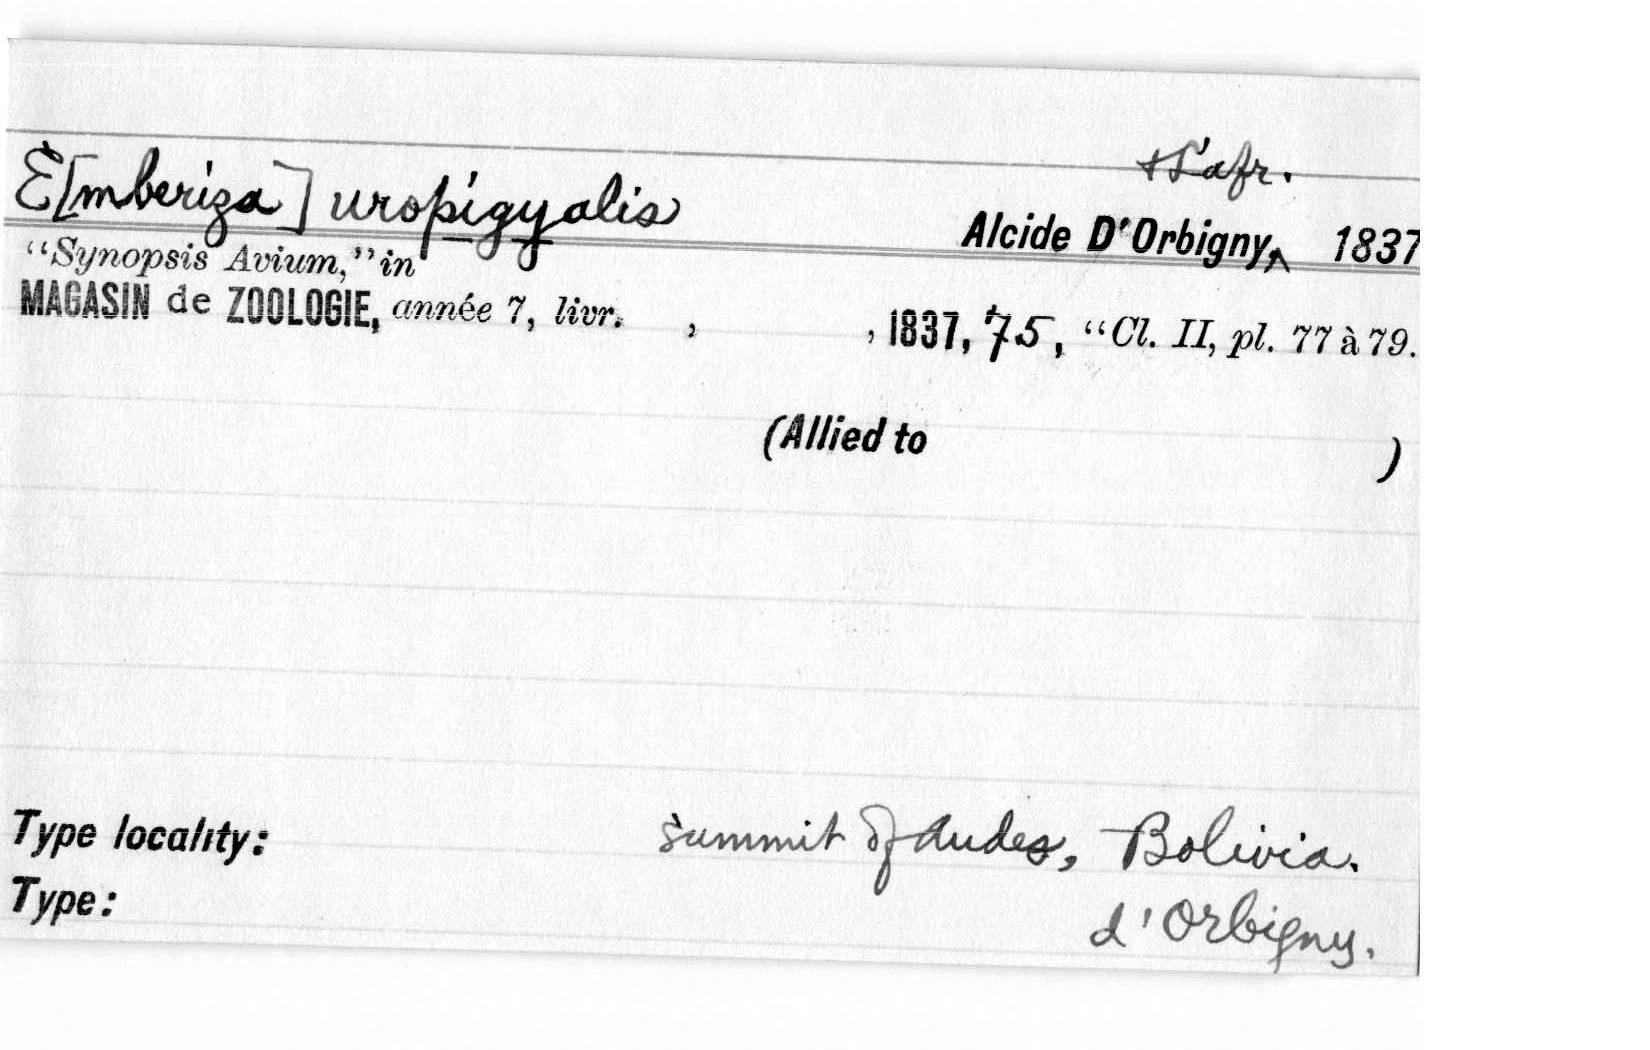 +Lafr.
E[mberiza] uropigyalis
Alcide D'Orbigny,^ 1837
“Synopsis Avium,” in
MAGASIN de ZOOLOGIE, année 7, livr. , , 1837, 75, “Cl. II, pl. 77 à 79.
(Allied to )
Type locality: summit of Andes, Bolivia.
Type: d'Orbigny.